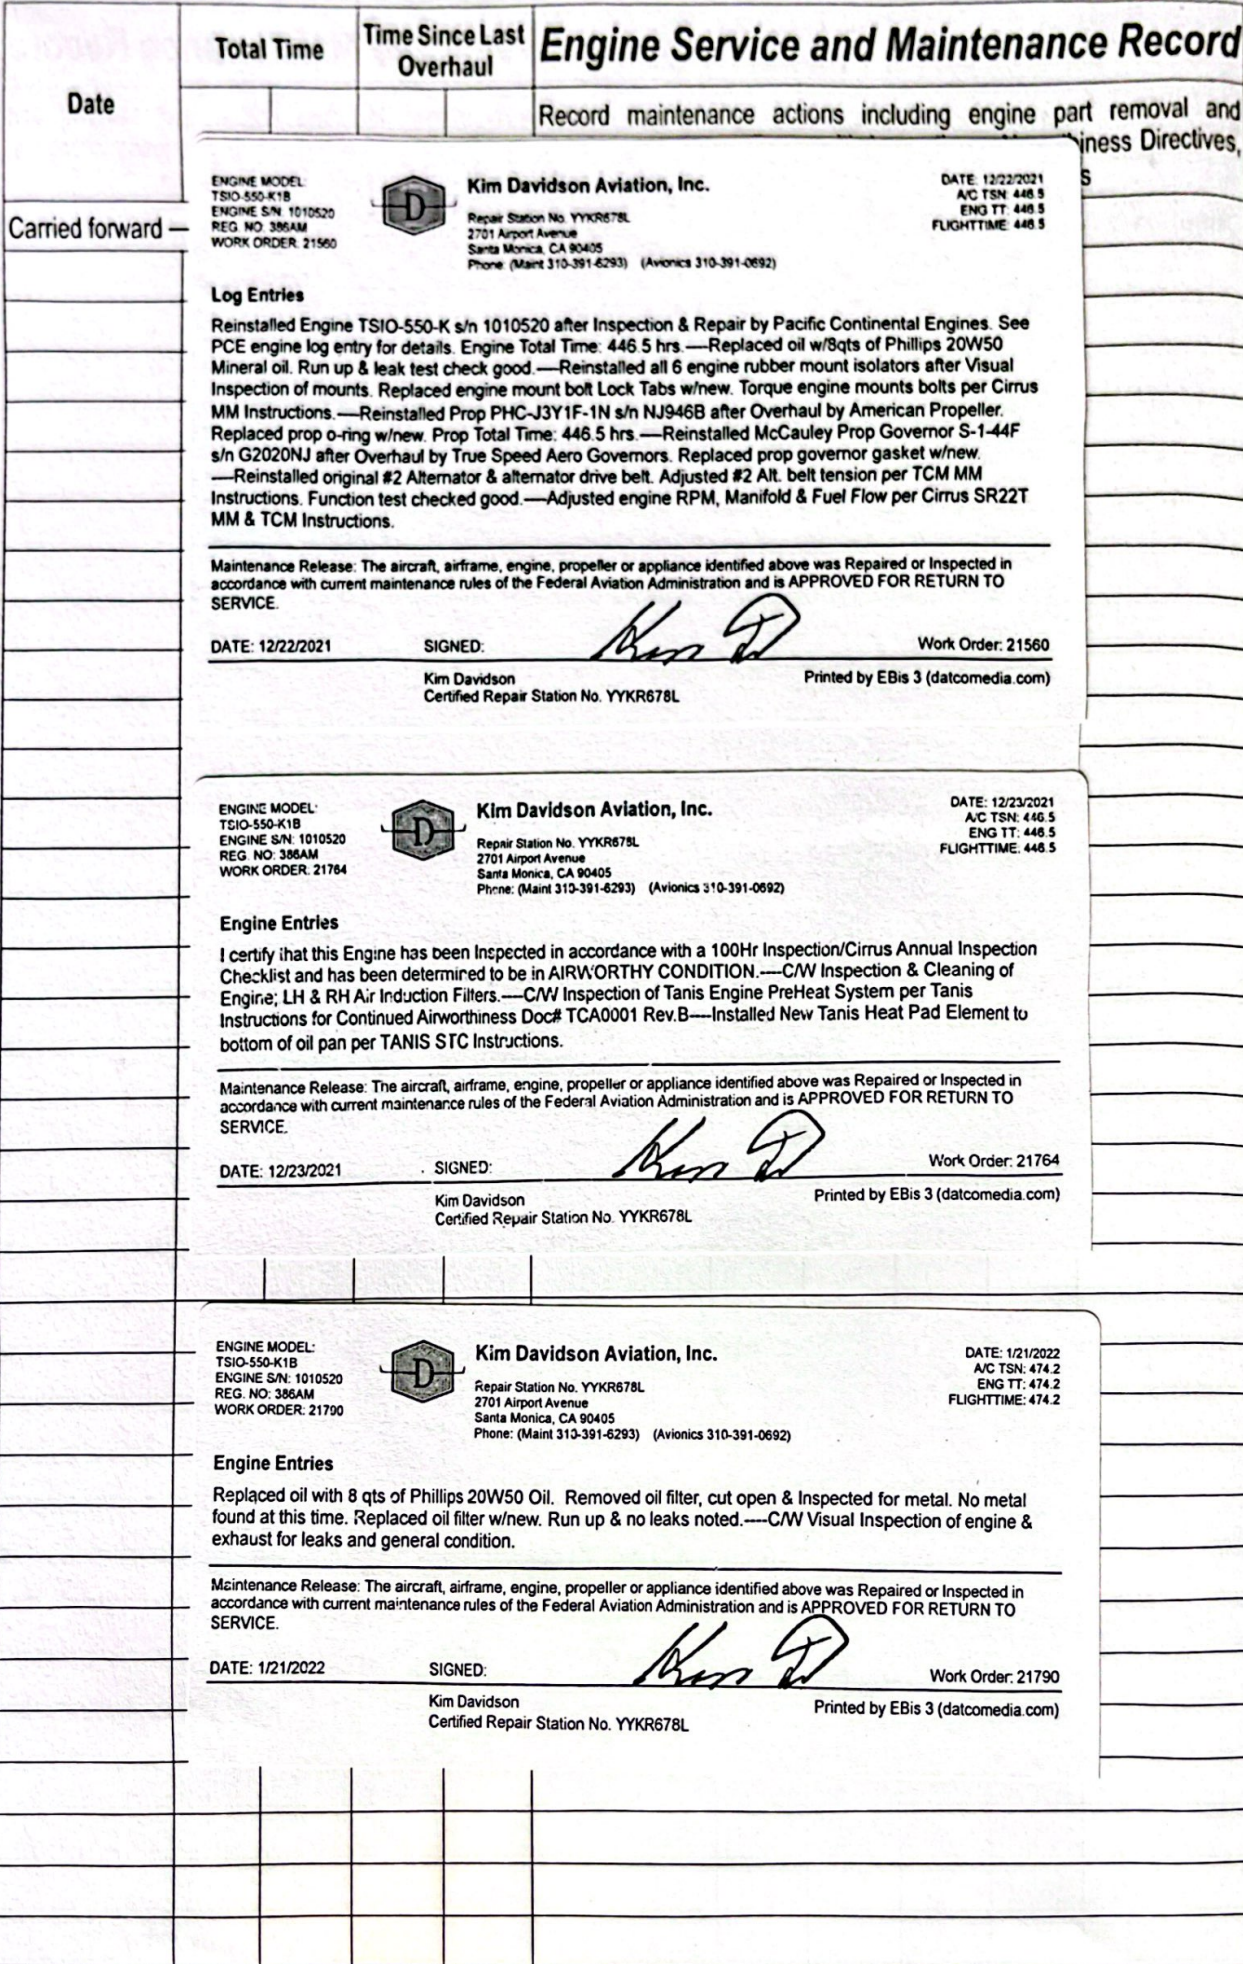 Date
Total Time
Time Since Last
Overhaul
Engine Service and Maintenance Record
Record maintenance actions including engine part removal and
iness Directives,
s
Carried forward
ENGINE MODEL:
TSIO-550-K1B
ENGINE S/N: 1010520
REG. NO: 386AM
WORK ORDER: 21560
D
Kim Davidson Aviation, Inc.
Repair Station No. YYKR678L
2701 Airport Avenue
Santa Monica, CA 90405
Phone: (Maint 310-391-6293) (Avionics 310-391-0692)
DATE: 12/22/2021
A/C TSN: 446.5
ENG TT: 446.5
FLIGHTTIME: 446.5
Log Entries
Reinstalled Engine TSIO-550-K s/n 1010520 after Inspection & Repair by Pacific Continental Engines. See
PCE engine log entry for details. Engine Total Time: 446.5 hrs.----Replaced oil w/8qts of Phillips 20W50
Mineral oil. Run up & leak test check good.----Reinstalled all 6 engine rubber mount isolators after Visual
Inspection of mounts. Replaced engine mount bolt Lock Tabs w/new. Torque engine mounts bolts per Cirrus
MM Instructions.----Reinstalled Prop PHC-J3Y1F-1N s/n NJ946B after Overhaul by American Propeller.
Replaced prop o-ring w/new. Prop Total Time: 446.5 hrs.----Reinstalled McCauley Prop Governor S-1-44F
s/n G2020NJ after Overhaul by True Speed Aero Governors. Replaced prop governor gasket w/new.
----Reinstalled original #2 Alternator & alternator drive belt. Adjusted #2 Alt. belt tension per TCM MM
Instructions. Function test checked good.----Adjusted engine RPM, Manifold & Fuel Flow per Cirrus SR22T
MM & TCM Instructions.
Maintenance Release: The aircraft, airframe, engine, propeller or appliance identified above was Repaired or Inspected in
accordance with current maintenance rules of the Federal Aviation Administration and is APPROVED FOR RETURN TO
SERVICE.
DATE: 12/22/2021
SIGNED:
Work Order: 21560
Kim Davidson
Certified Repair Station No. YYKR678L
Printed by EBis 3 (datcomedia.com)
ENGINE MODEL:
TSIO-550-K1B
ENGINE S/N: 1010520
REG. NO: 386AM
WORK ORDER: 21764
D
Kim Davidson Aviation, Inc.
Repair Station No. YYKR678L
2701 Airport Avenue
Santa Monica, CA 90405
Phone: (Maint 310-391-6293) (Avionics 310-391-0692)
DATE: 12/23/2021
A/C TSN: 446.5
ENG TT: 446.5
FLIGHTTIME: 446.5
Engine Entries
I certify that this Engine has been Inspected in accordance with a 100Hr Inspection/Cirrus Annual Inspection
Checklist and has been determined to be in AIRWORTHY CONDITION.----C/W Inspection & Cleaning of
Engine; LH & RH Air Induction Filters.----C/W Inspection of Tanis Engine PreHeat System per Tanis
Instructions for Continued Airworthiness Doc# TCA0001 Rev.B----Installed New Tanis Heat Pad Element to
bottom of oil pan per TANIS STC Instructions.
Maintenance Release: The aircraft, airframe, engine, propeller or appliance identified above was Repaired or Inspected in
accordance with current maintenance rules of the Federal Aviation Administration and is APPROVED FOR RETURN TO
SERVICE.
DATE: 12/23/2021
SIGNED:
Work Order: 21764
Kim Davidson
Certified Repair Station No. YYKR678L
Printed by EBis 3 (datcomedia.com)
ENGINE MODEL:
TSIO-550-K1B
ENGINE S/N: 1010520
REG. NO: 386AM
WORK ORDER: 21790
D
Kim Davidson Aviation, Inc.
Repair Station No. YYKR678L
2701 Airport Avenue
Santa Monica, CA 90405
Phone: (Maint 310-391-6293) (Avionics 310-391-0692)
DATE: 1/21/2022
A/C TSN: 474.2
ENG TT: 474.2
FLIGHTTIME: 474.2
Engine Entries
Replaced oil with 8 qts of Phillips 20W50 Oil. Removed oil filter, cut open & Inspected for metal. No metal
found at this time. Replaced oil filter w/new. Run up & no leaks noted.----C/W Visual Inspection of engine &
exhaust for leaks and general condition.
Maintenance Release: The aircraft, airframe, engine, propeller or appliance identified above was Repaired or Inspected in
accordance with current maintenance rules of the Federal Aviation Administration and is APPROVED FOR RETURN TO
SERVICE.
DATE: 1/21/2022
SIGNED:
Work Order: 21790
Kim Davidson
Certified Repair Station No. YYKR678L
Printed by EBis 3 (datcomedia.com)